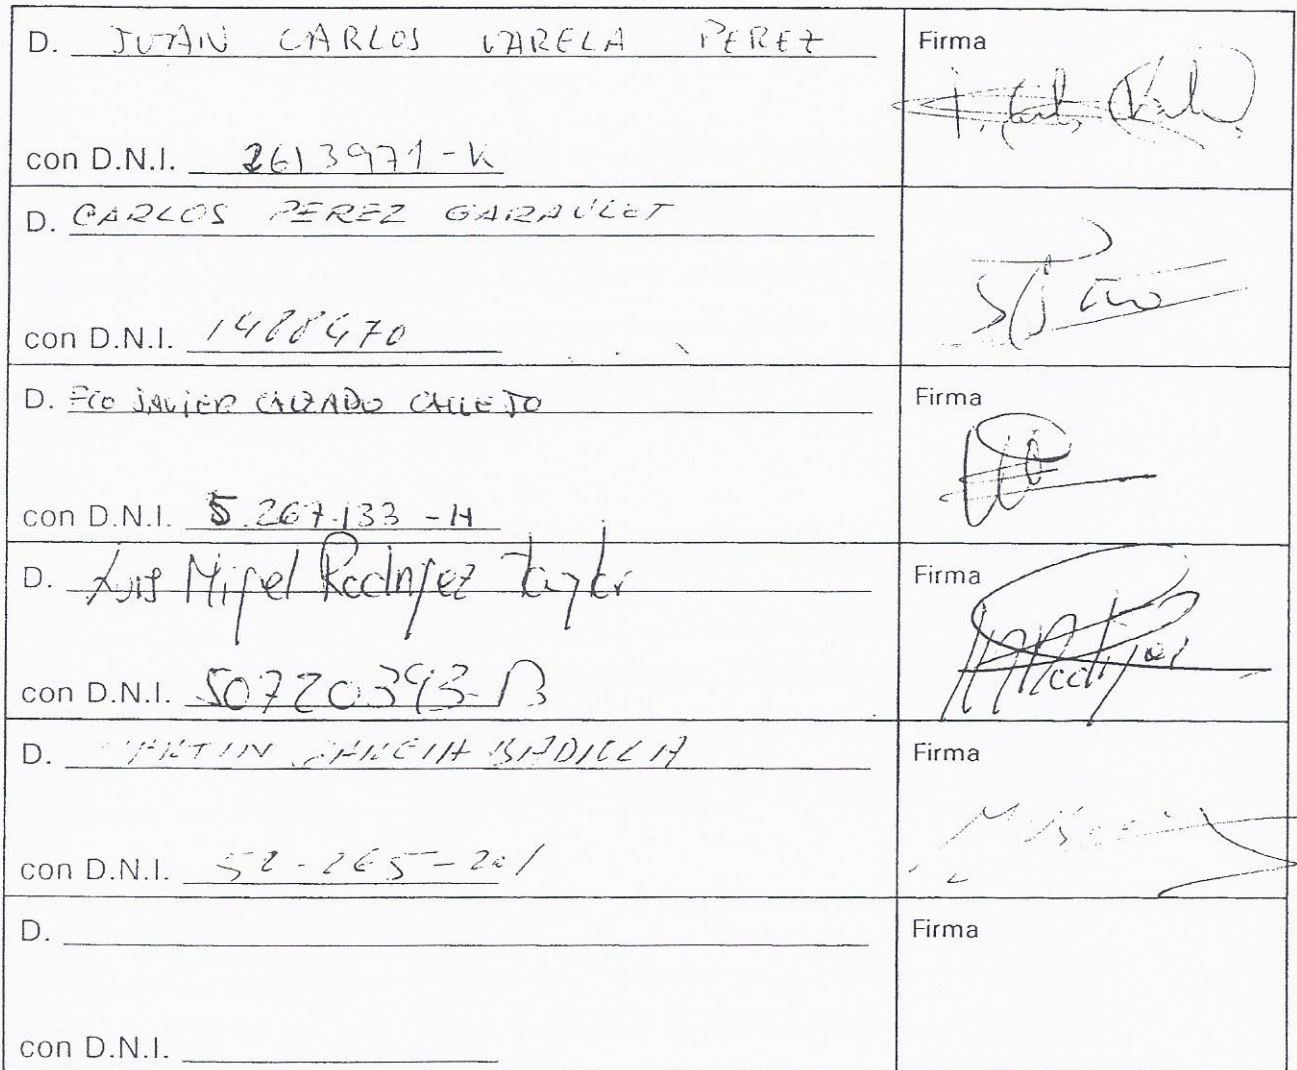 D. JUAN CARLOS VARELA PEREZ
Firma
con D.N.I. 2613971-K
D. CARLOS PEREZ GARAULET
con D.N.I. 1488470
D. FCO JAVIER CALZADO CALLEJO
Firma
con D.N.I. 5.267.133 - H
D. Luis Miguel Rodriguez Taylor
Firma
con D.N.I. 50720393-B
D. MARTIN GARCIA BADILLA
Firma
con D.N.I. 52-265-201
D.
Firma
con D.N.I.